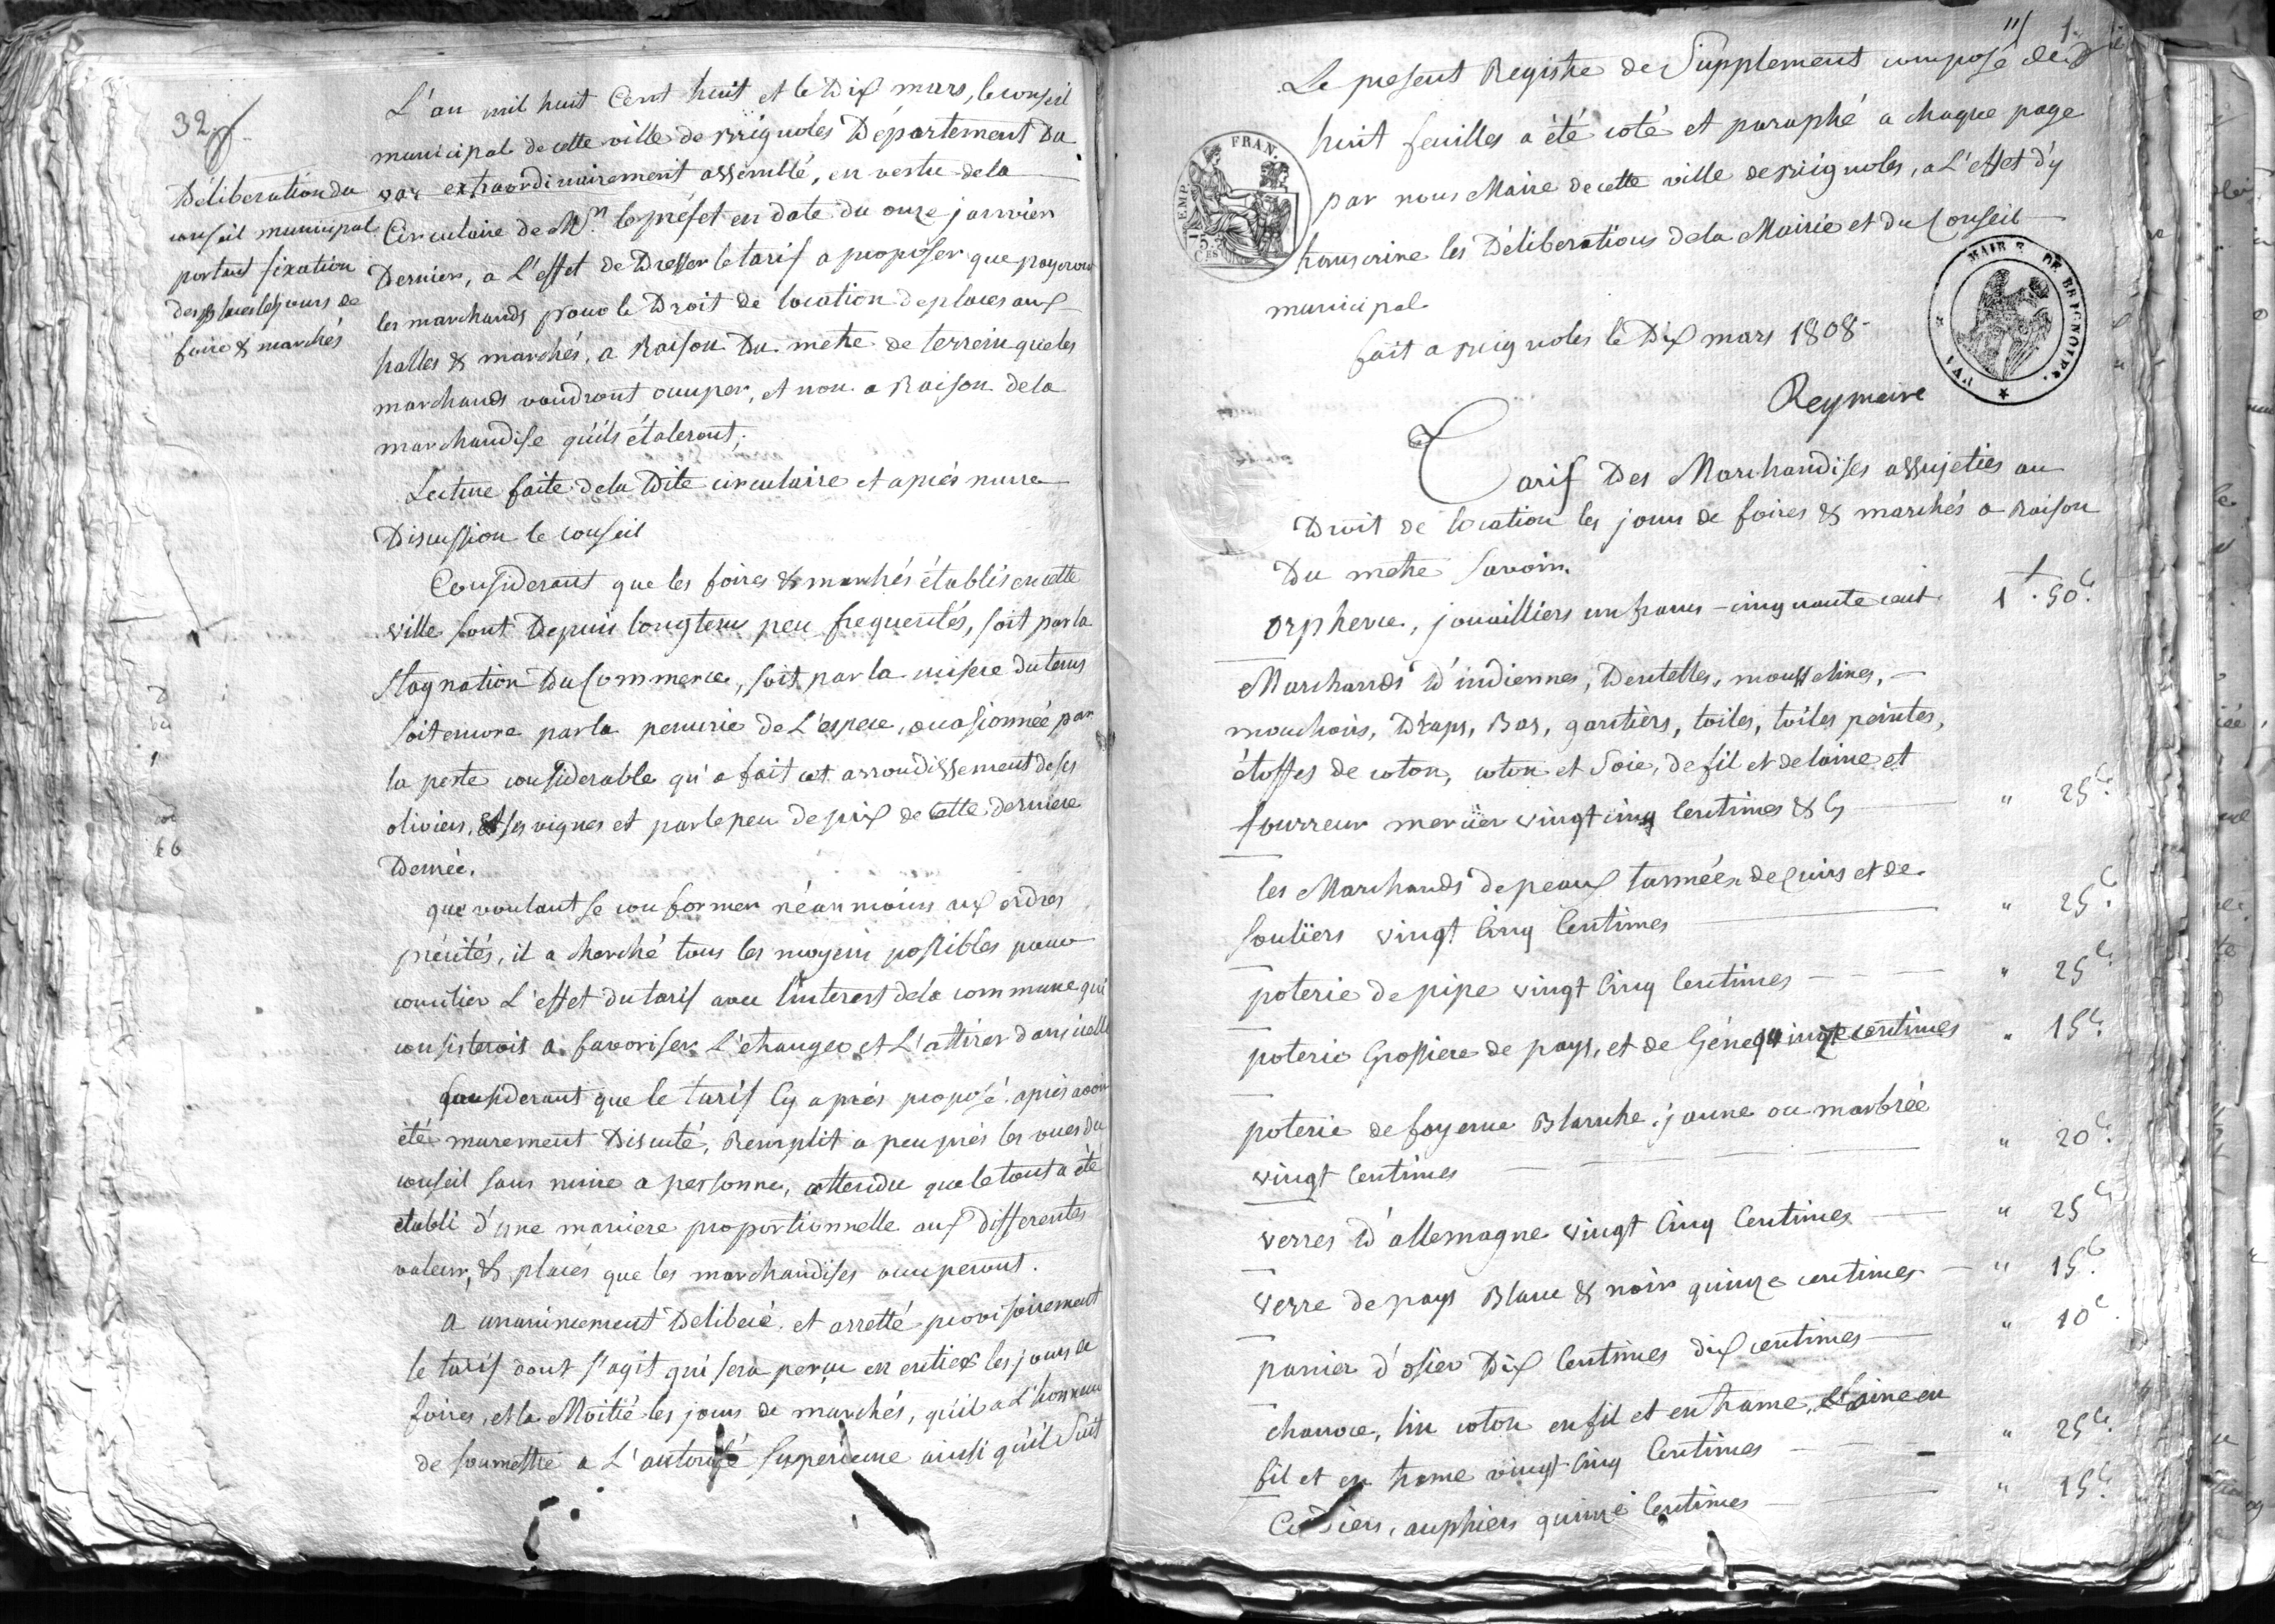 32
Déliberation du
conseil municipal
portant fixation
des places les jours de
foire & marchés
L'an mil huit Cent huit et le Dix mars, le conseil
municipal de cette ville de Brignoles Département Du
var extraordinairement assemblé, en vertu de la
Circulaire de Mr. le préfet en date du onze janvier
Dernier, a L'effet de Dresser le tarif a proposer que payeront
les marchands pour le Droit de location de places aux
halles & marchés, a Raison Du metre de terrein que les
marchands voudront occuper, et non a Raison de la
marchandise qu'ils étaleront;
Lecture faite de la Dite circulaire et après mure
Discussion le conseil
Considerant que les foires & marchés établis en cette
ville sont Depuis longtems peu frequentés, soit par la
stagnation Du Commerce, soit par la misere du tems
soit encore par la penurie de L'espece, occasionnée par
la perte considerable qu'a fait cet arrondissement de ses
oliviers, et ses vignes et par le peu de prix de cette derniere
Denrée.
que voulant se conformer néanmoins aux ordres
précités, il a cherché tous les moyens possibles pour
concilier L'effet du tarif avec l'interest de la commune qui
consisteroit a favoriser L'etranger et L'attirer dans icelle
Considerant que le tarif Cy après proposé, après avoir
été murement Discuté, Remplit a peu près les vues du
conseil sans nuire a personne, attendu que le tout a été
établi d'une maniere proportionnelle aux differentes
valeurs, & places que les marchandises occuperont.
a unanimement Deliberé, et arretté provisoirement
le tarif dont s'agit qui sera perçu en entier les jours de
foires, et la Moitié les jours de marchés, qu'il a L'honneur
de soumettre a L'autorité Superieure ainsi qu'il Suit
11 1.
Le present Registre de Supplement composé de dix
huit feuilles a été coté et paraphé a chaque page
par nous Maire de cette ville de Brignoles, a L'effet d'y
transcrire les Déliberations de la Mairie et du Conseil
municipal
fait a Brignoles le Dix mars 1808
Rey maire
FRAN.
EMP.
75.
MAIRIE DE BRIGNOLES.
VAR
Tarif Des Marchandises assujeties au
Droit de location les jours de foires & marchés a Raison
Du metre Savoir.
orphevre, jouailliers un franc - cinquante cent. 1f. 50c.
Marchands d'indiennes, Dentelles, mousselines,
mouchoirs, Draps, Bas, gantiers, toiles, toiles peintes,
étoffes de coton, coton et Soie, de fil et de laine et
fourreur mercier vingt cinq Centimes & Cy " 25c.
les Marchands de peaux tannées de cuirs et de
Souliers vingt Cinq Centimes " 25c.
poterie de pipe vingt Cinq Centimes " 25c.
poterie Grossiere de pays, et de Gênes quinze centimes " 15c.
poterie de fayence Blanche, jaune ou marbrée
vingt Centimes " 20c.
verres D'allemagne vingt Cinq Centimes " 25c.
verre de pays Blanc & noir quinze centimes " 15c.
panier d'osier Dix Centimes dix centimes " 10c.
chanvre, lin coton en fil et en trame, & laine en
fil et en trame vingt Cinq Centimes " 25c.
auphiers quinze Centimes " 15c.